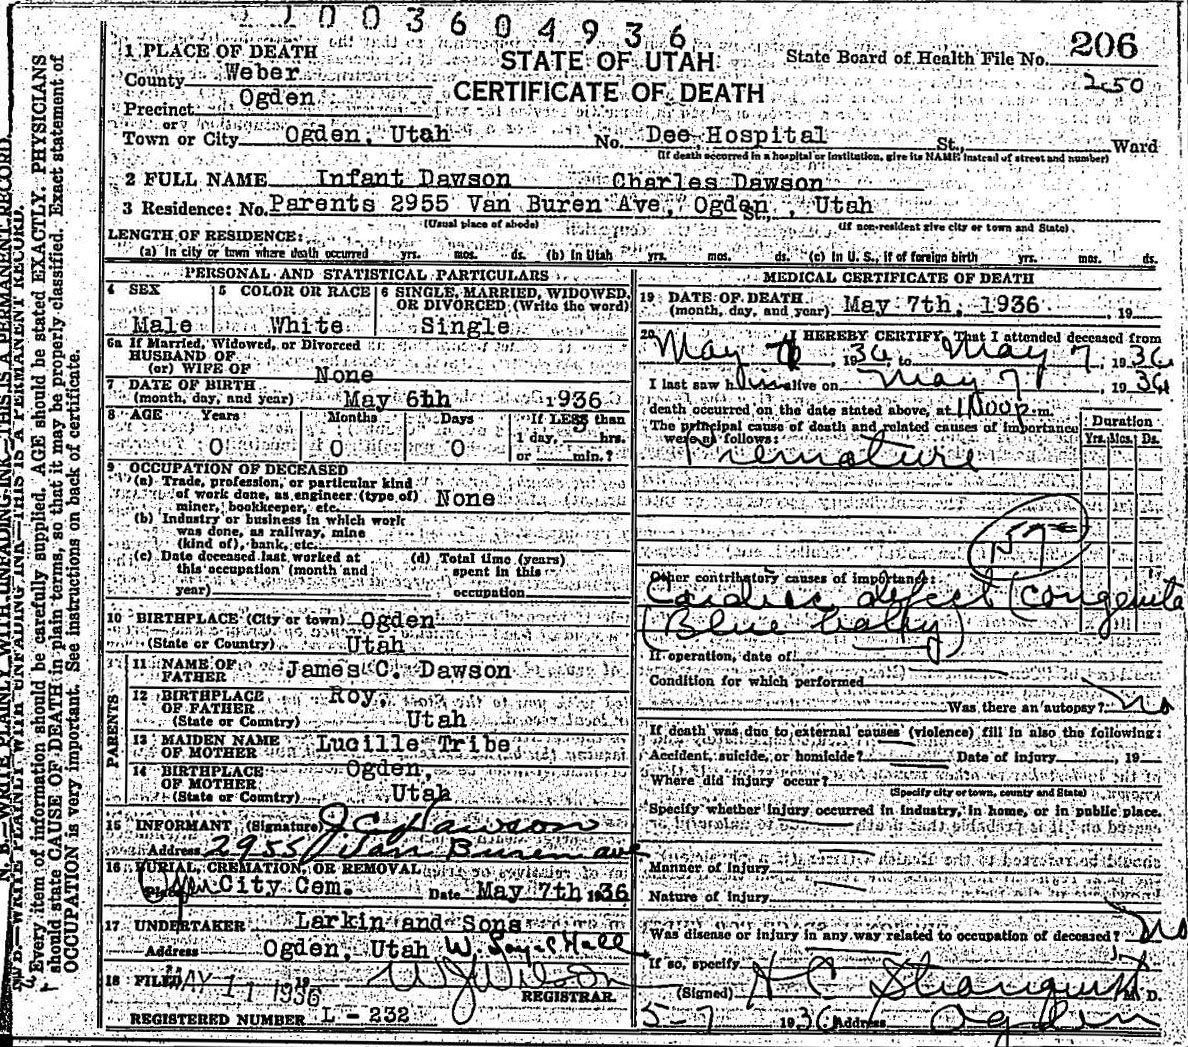 1003604936
1 PLACE OF DEATH
STATE OF UTAH
CERTIFICATE OF DEATH
State Board of Health File No. 206
250
County Weber
Precinct Ogden
or
Town or City Ogden, Utah No. Dee Hospital St., Ward
(If death occurred in a hospital or institution, give its NAME instead of street and number)
2 FULL NAME Infant Dawson Charles Dawson
3 Residence: No. Parents 2955 Van Buren Ave, Ogden St., Utah
(Usual place of abode) (If non-resident give city or town and State)
LENGTH OF RESIDENCE:
(a) In city or town where death occurred yrs. mos. ds. (b) In Utah yrs. mos. ds. (c) In U. S., if of foreign birth yrs. mos. ds.
PERSONAL AND STATISTICAL PARTICULARS
4 SEX 5 COLOR OR RACE 6 SINGLE, MARRIED, WIDOWED, OR DIVORCED (Write the word)
Male White Single
6a If Married, Widowed, or Divorced
HUSBAND OF
(or) WIFE OF None
7 DATE OF BIRTH
(month, day, and year) May 6th 1936
8 AGE Years Months Days If LESS than
0 0 0 1 day, 5 hrs.
or min.?
9 OCCUPATION OF DECEASED
(a) Trade, profession, or particular kind
of work done, as engineer (type of)
miner, bookkeeper, etc. None
(b) Industry or business in which work
was done, as railway, mine
(kind of), bank, etc.
(c) Date deceased last worked at
this occupation (month and
year)
(d) Total time (years)
spent in this
occupation
10 BIRTHPLACE (City or town) Ogden
(State or Country) Utah
PARENTS
11 NAME OF
FATHER James C. Dawson
12 BIRTHPLACE
OF FATHER Roy,
(State or Country) Utah
13 MAIDEN NAME
OF MOTHER Lucille Tribe
14 BIRTHPLACE
OF MOTHER Ogden,
(State or Country) Utah
15 INFORMANT (Signature) J C Dawson
Address 2955 Van Buren ave
16 BURIAL, CREMATION, OR REMOVAL
Place Ogden City Cem. Date May 7th 1936
17 UNDERTAKER Larkin and Sons
Address Ogden, Utah
18 FILED MAY 11 1936 19 W J Wilson
REGISTRAR.
REGISTERED NUMBER L - 232
MEDICAL CERTIFICATE OF DEATH
19 DATE OF DEATH
(month, day, and year) May 7th, 1936 , 19
20 I HEREBY CERTIFY, That I attended deceased from
May 1936, to May 7, 1936
I last saw him alive on May 7, 1936
death occurred on the date stated above, at m.
The principal cause of death and related causes of importance
were as follows:
Duration
Yrs. Mos. Ds.
Premature
Other contributory causes of importance:
Cardiac defect (congenital
(Blue baby)
If operation, date of
Condition for which performed
Was there an autopsy? No
If death was due to external causes (violence) fill in also the following:
Accident, suicide, or homicide? Date of injury , 19
Where did injury occur?
(Specify city or town, county and State)
Specify whether injury occurred in industry, in home, or in public place.
Manner of injury
Nature of injury
Was disease or injury in any way related to occupation of deceased? No
If so, specify
(Signed) H C Stranquist M. D.
5-7 1936 Address Ogden
N. B.—WRITE PLAINLY WITH UNFADING INK—THIS IS A PERMANENT RECORD.
Every item of information should be carefully supplied. AGE should be stated EXACTLY. PHYSICIANS
should state CAUSE OF DEATH in plain terms, so that it may be properly classified. Exact statement of
OCCUPATION is very important. See instructions on back of certificate.